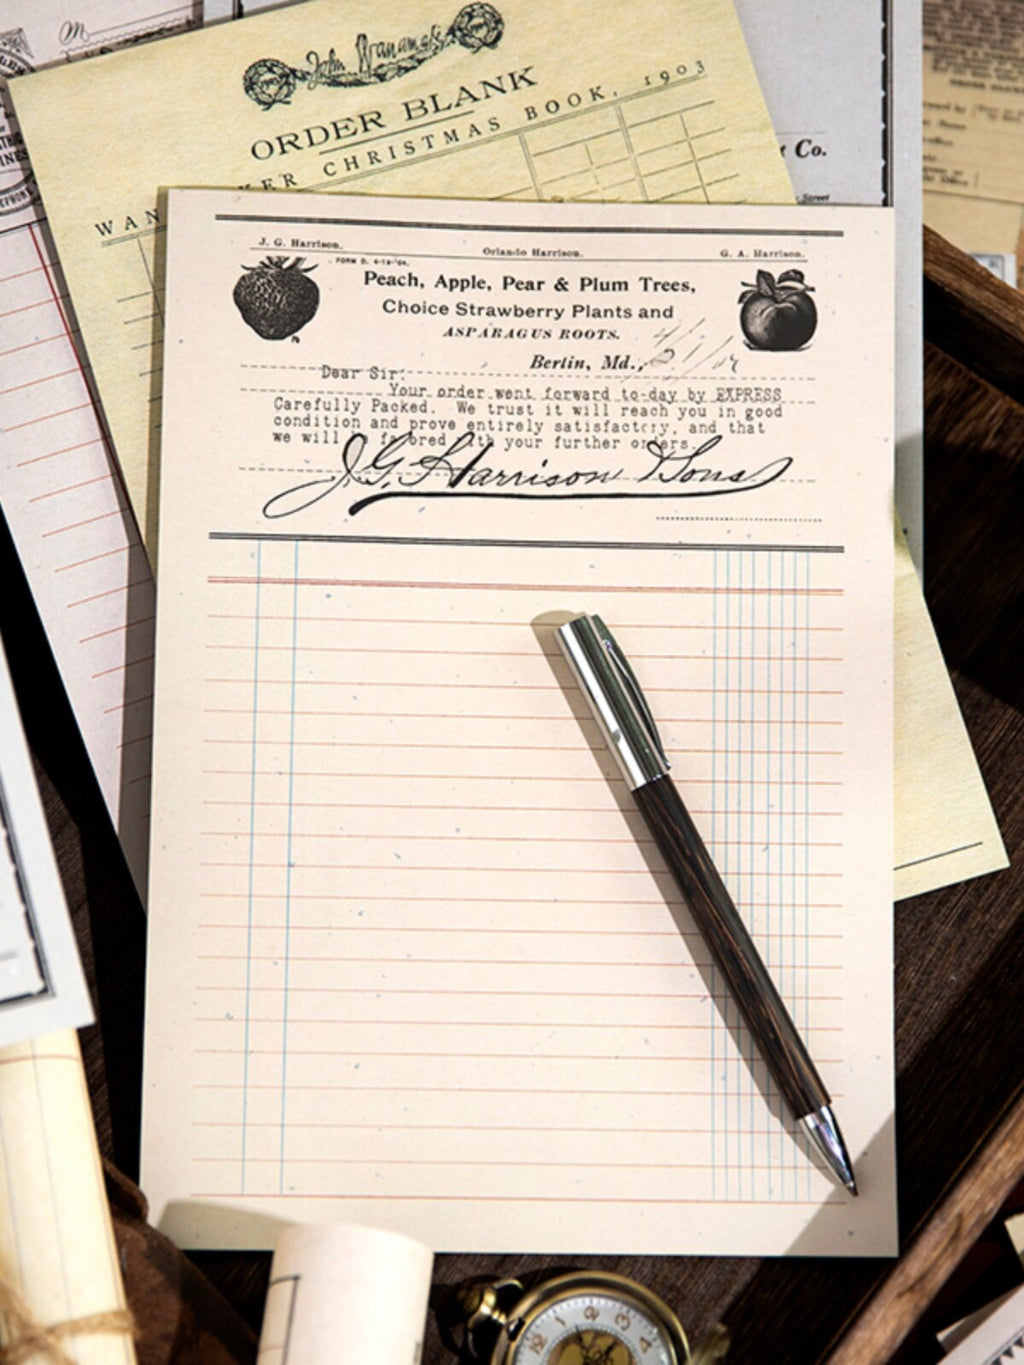 John Wanamaker
ORDER BLANK
KER CHRISTMAS BOOK, 1903
WAN
Co.
Street
J. G. Harrison.
Orlando Harrison.
G. A. Harrison.
FORM D.
Peach, Apple, Pear & Plum Trees,
Choice Strawberry Plants and
ASPARAGUS ROOTS.
Berlin, Md.,
Dear Sir:
Your order went forward to-day by EXPRESS
Carefully Packed. We trust it will reach you in good
condition and prove entirely satisfactory, and that
we will be favored with your further orders.
J.G. Harrison & Sons